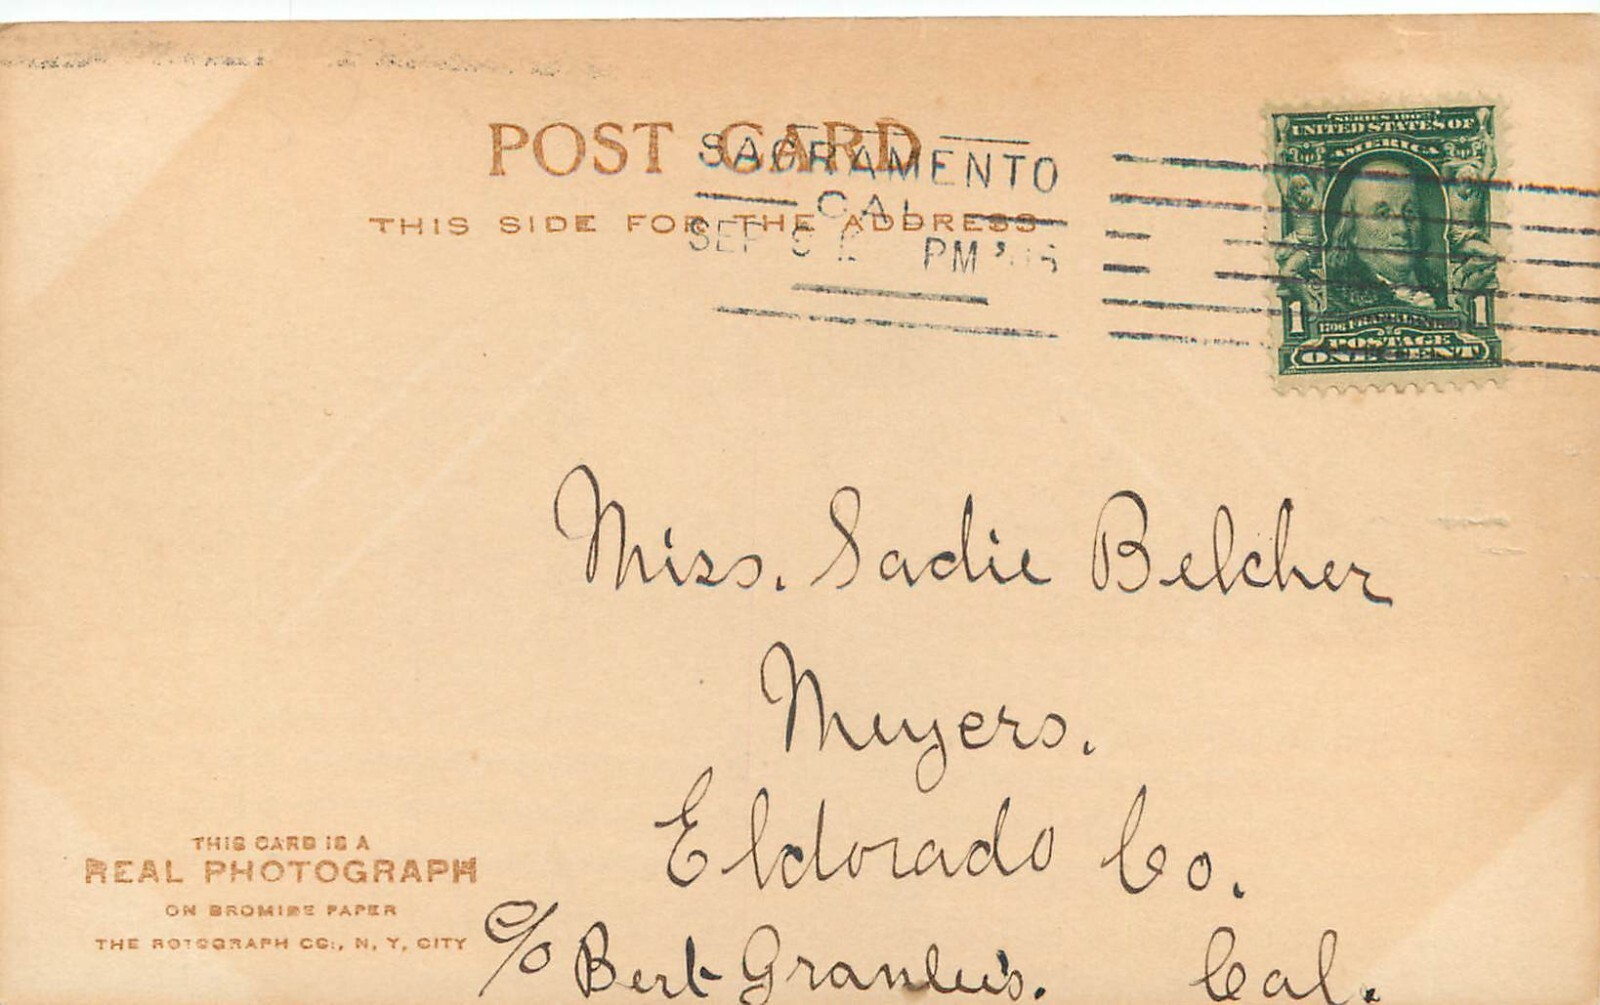 POST CARD
THIS SIDE FOR THE ADDRESS
SACRAMENTO
CAL
SEP PM
SERIES 1902
UNITED STATES OF
AMERICA
1 1
FRANKLIN
POSTAGE
ONE CENT
Miss. Sadie Belcher
Meyers.
Eldorado Co.
c/o Bert Cal.
THIS CARD IS A
REAL PHOTOGRAPH
ON BROMIDE PAPER
THE ROTOGRAPH CO., N. Y. CITY